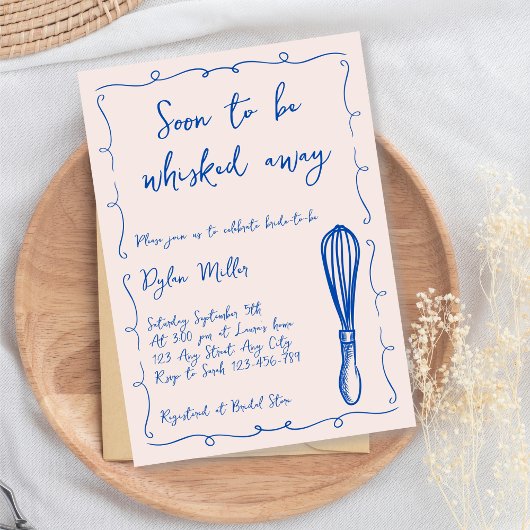 Soon to be
whisked away
Please join us to celebrate bride-to-be
Dylan Miller
Saturday September 5th
At 3:00 pm at Laura's home
123 Any Street, Any City
Rsvp to Sarah 123-456-789
Registered at Bridal Store